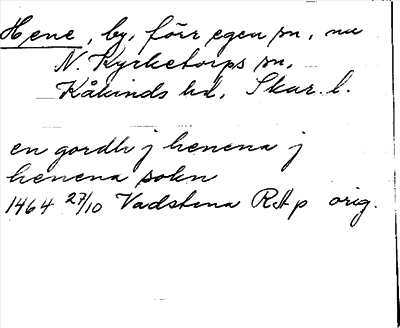 Hene, by, förr egen sn, nu
N. Kyrketorps sn,
Kåkinds hd, Skar. l.
en gordh j henena j
henena sokn
1464 27/10 Vadstena RAp orig.